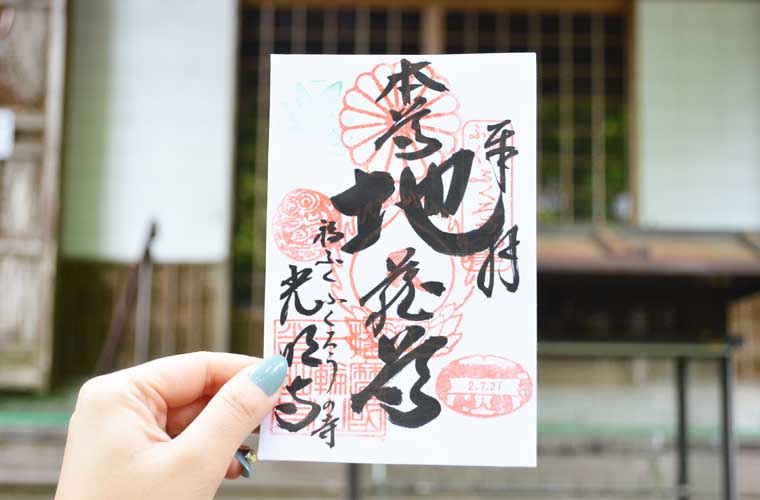 奉拝
本尊
地蔵尊
福ふくふくろうの寺
光明寺
2.7.27